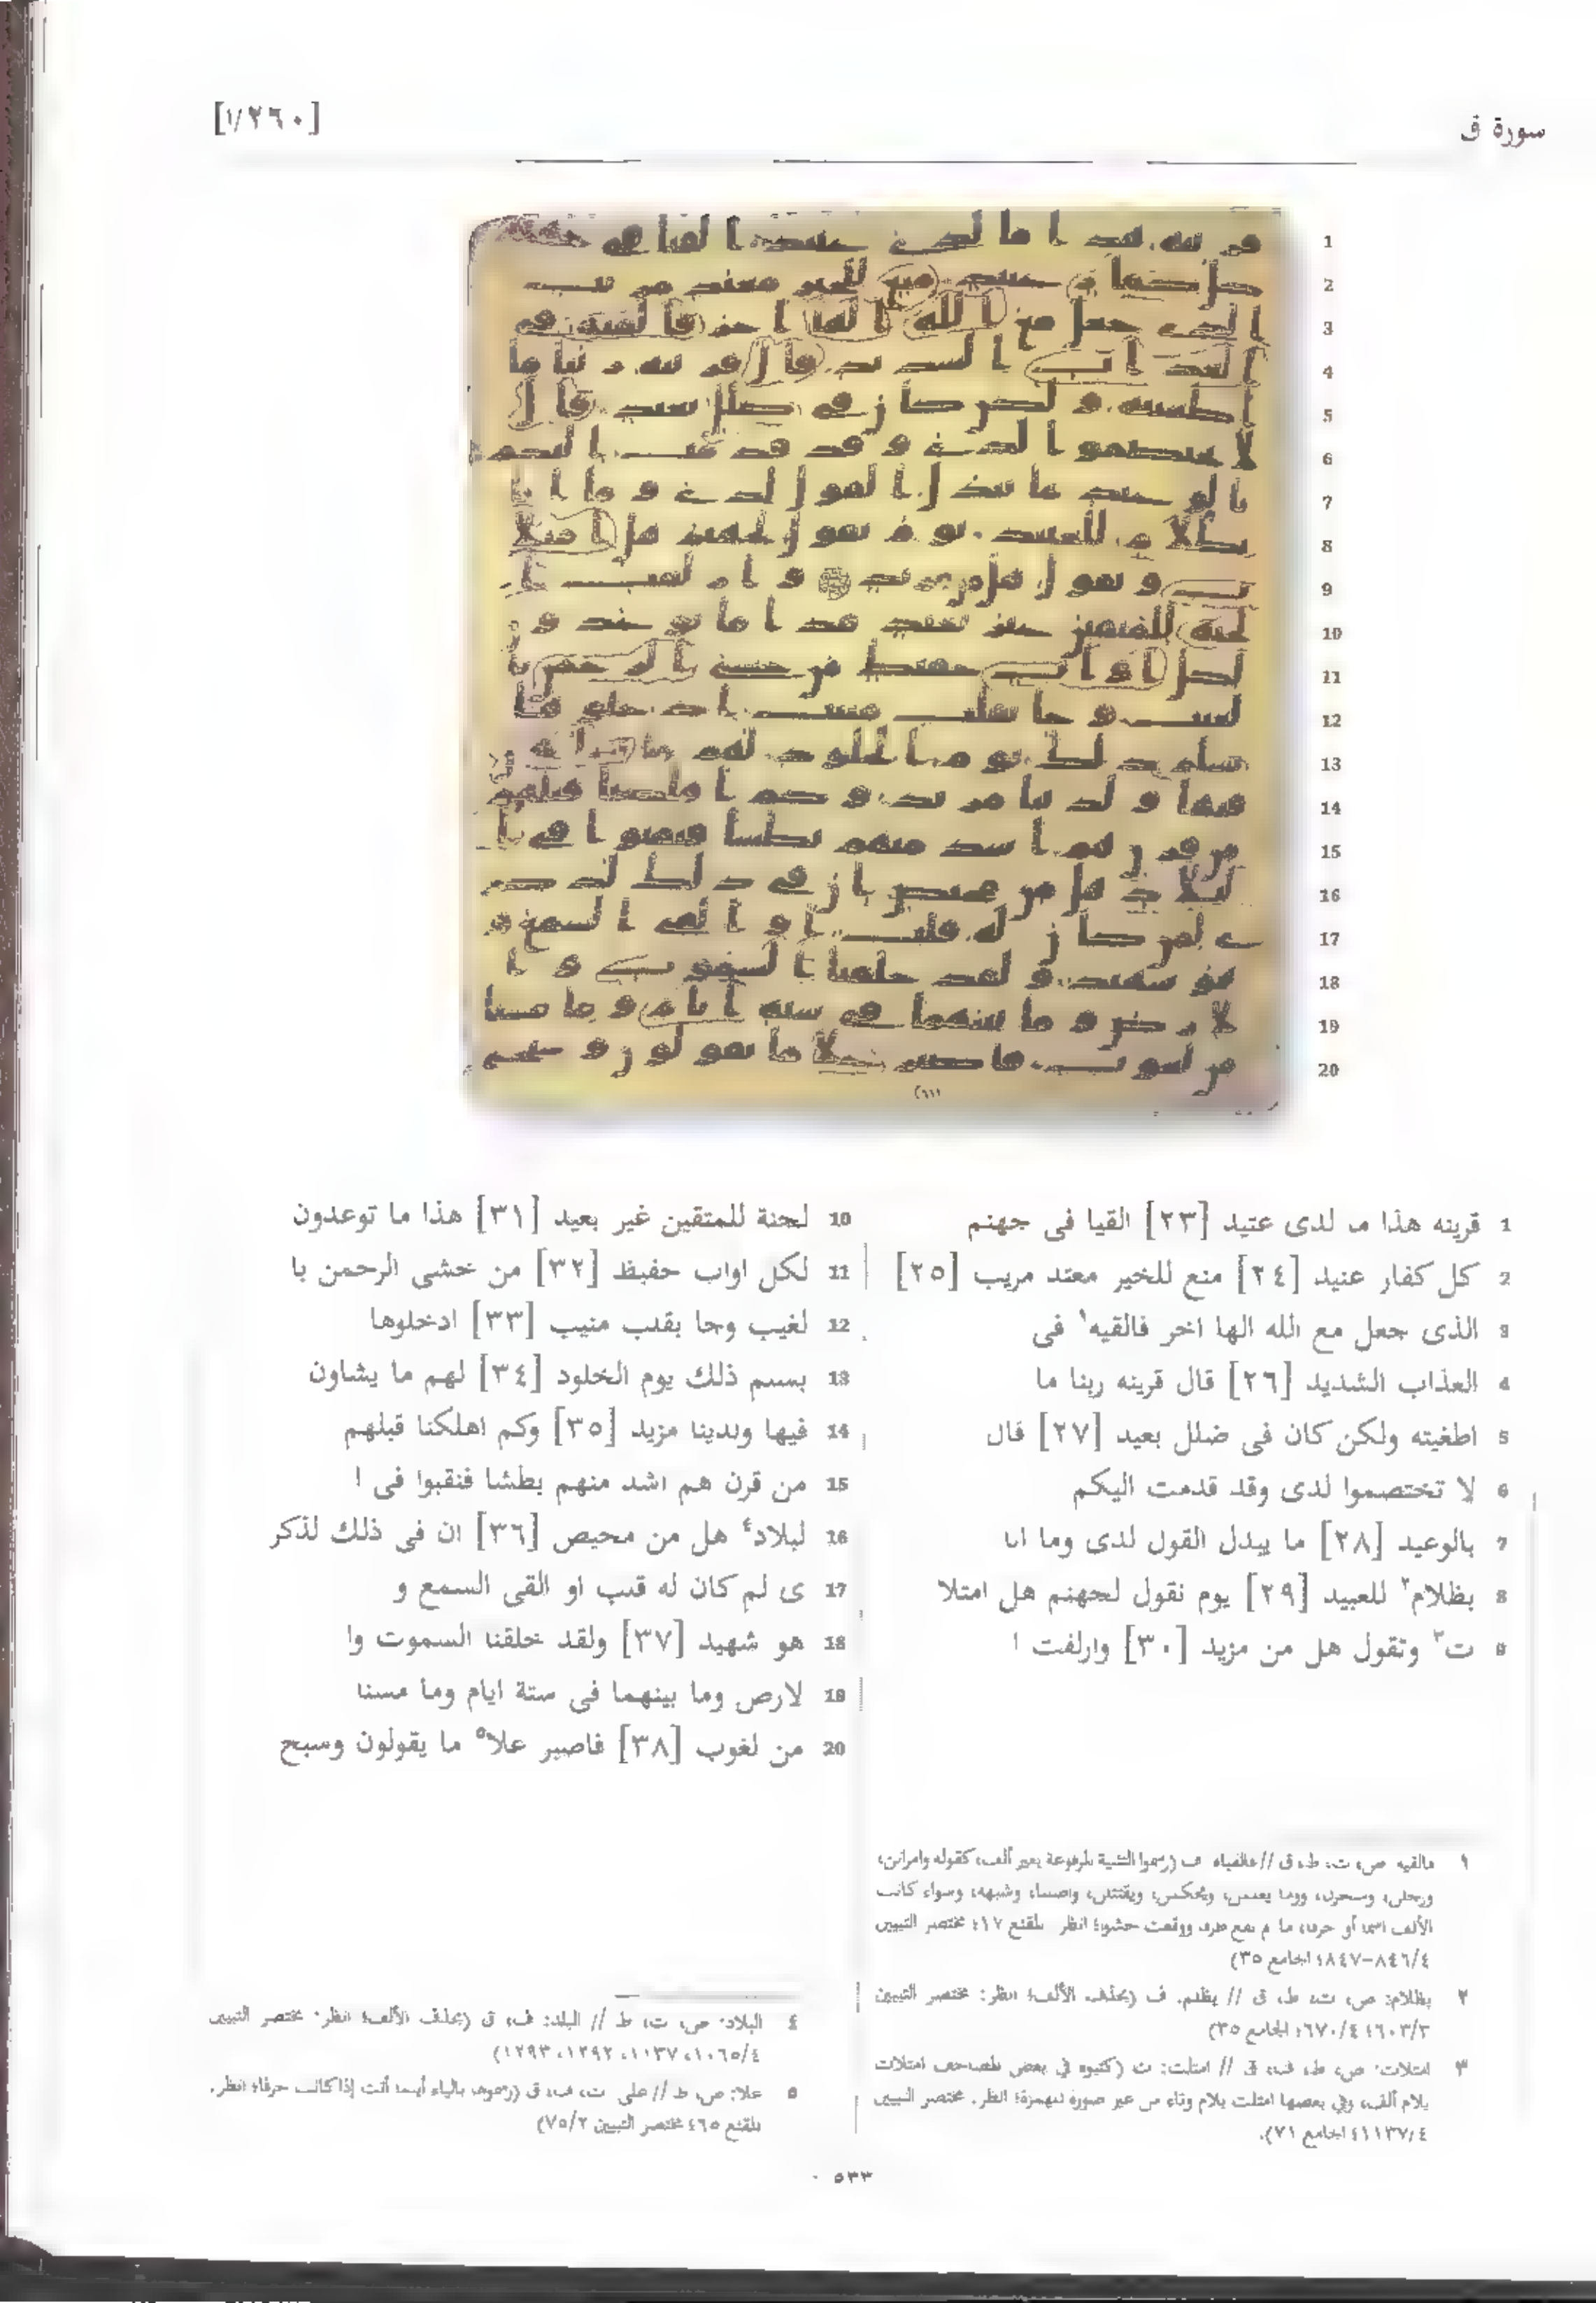 سورة ق
[١/٢٦٠]
1 قرينه هذا ما لدى عتيد [٢٣] القيا فى جهنم
2 كل كفار عنيد [٢٤] منع للخير معتد مريب [٢٥]
3 الذى جعل مع الله الها اخر فالقيه١ فى
4 العذاب الشديد [٢٦] قال قرينه ربنا ما
5 اطغيته ولكن كان فى ضلل بعيد [٢٧] قال
6 لا تختصموا لدى وقد قدمت اليكم
7 بالوعيد [٢٨] ما يبدل القول لدى وما انا
8 بظلام٢ للعبيد [٢٩] يوم نقول لجهنم هل امتلا
9 ت٣ وتقول هل من مزيد [٣٠] وازلفت ا
10 لجنة للمتقين غير بعيد [٣١] هذا ما توعدون
11 لكل اواب حفيظ [٣٢] من خشى الرحمن با
12 لغيب وجا بقلب منيب [٣٣] ادخلوها
13 بسلم ذلك يوم الخلود [٣٤] لهم ما يشاون
14 فيها ولدينا مزيد [٣٥] وكم اهلكنا قبلهم
15 من قرن هم اشد منهم بطشا فنقبوا فى ا
16 لبلاد٤ هل من محيص [٣٦] ان فى ذلك لذكر
17 ى لمن كان له قلب او القى السمع و
18 هو شهيد [٣٧] ولقد خلقنا السموت وا
19 لارض وما بينهما فى ستة ايام وما مسنا
20 من لغوب [٣٨] فاصبر علا٥ ما يقولون وسبح
١ فالقيه ص، ت، ط، ق // فالقياه ف (رسموا التثنية المرفوعة بغير ألف، كقوله وامراتن،
وشبهه، وسواء كانت
الألف اسما أو حرفا، ما لم تقع طرفا ووقعت حشوا؛ انظر المقنع ١٧؛ مختصر التبيين
٨٤٦/٤-٨٤٧؛ الجامع ٣٥)
٢ بظلام: ص، ت، ط، ق // بظلم. ف (بحذف الألف؛ انظر: مختصر التبيين
٦٠٣/٣؛ ٦٧٠/٤؛ الجامع ٣٥)
٣ امتلات: ص، ط، ف، ق // امتلت: ت (كتبوه في بعض المصاحف امتلات
بلام ألف، وفي بعضها امتلت بلام وتاء من غير صورة للهمزة؛ انظر. مختصر التبيين
١١٣٧/٤؛ الجامع ٧١).
٤ البلاد: ص، ت، ط // البلد: ف، ق (بحذف الألف؛ انظر: مختصر التبيين
١٠٦٥/٤، ١١٣٧، ١٢٩٢، ١٢٩٣)
٥ علا: ص، ط // على ت، ف، ق (رسموه بالياء أينما أتت إذا كانت حرفا؛ انظر.
المقنع ٦٥؛ مختصر التبيين ٧٥/٢)
٥٣٣